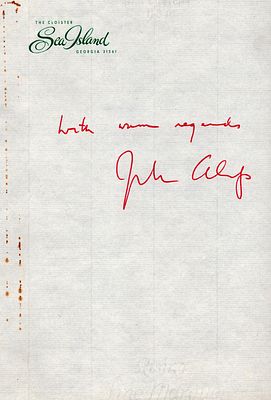 THE CLOISTER
Sea Island
GEORGIA 31561
With warm regards
John